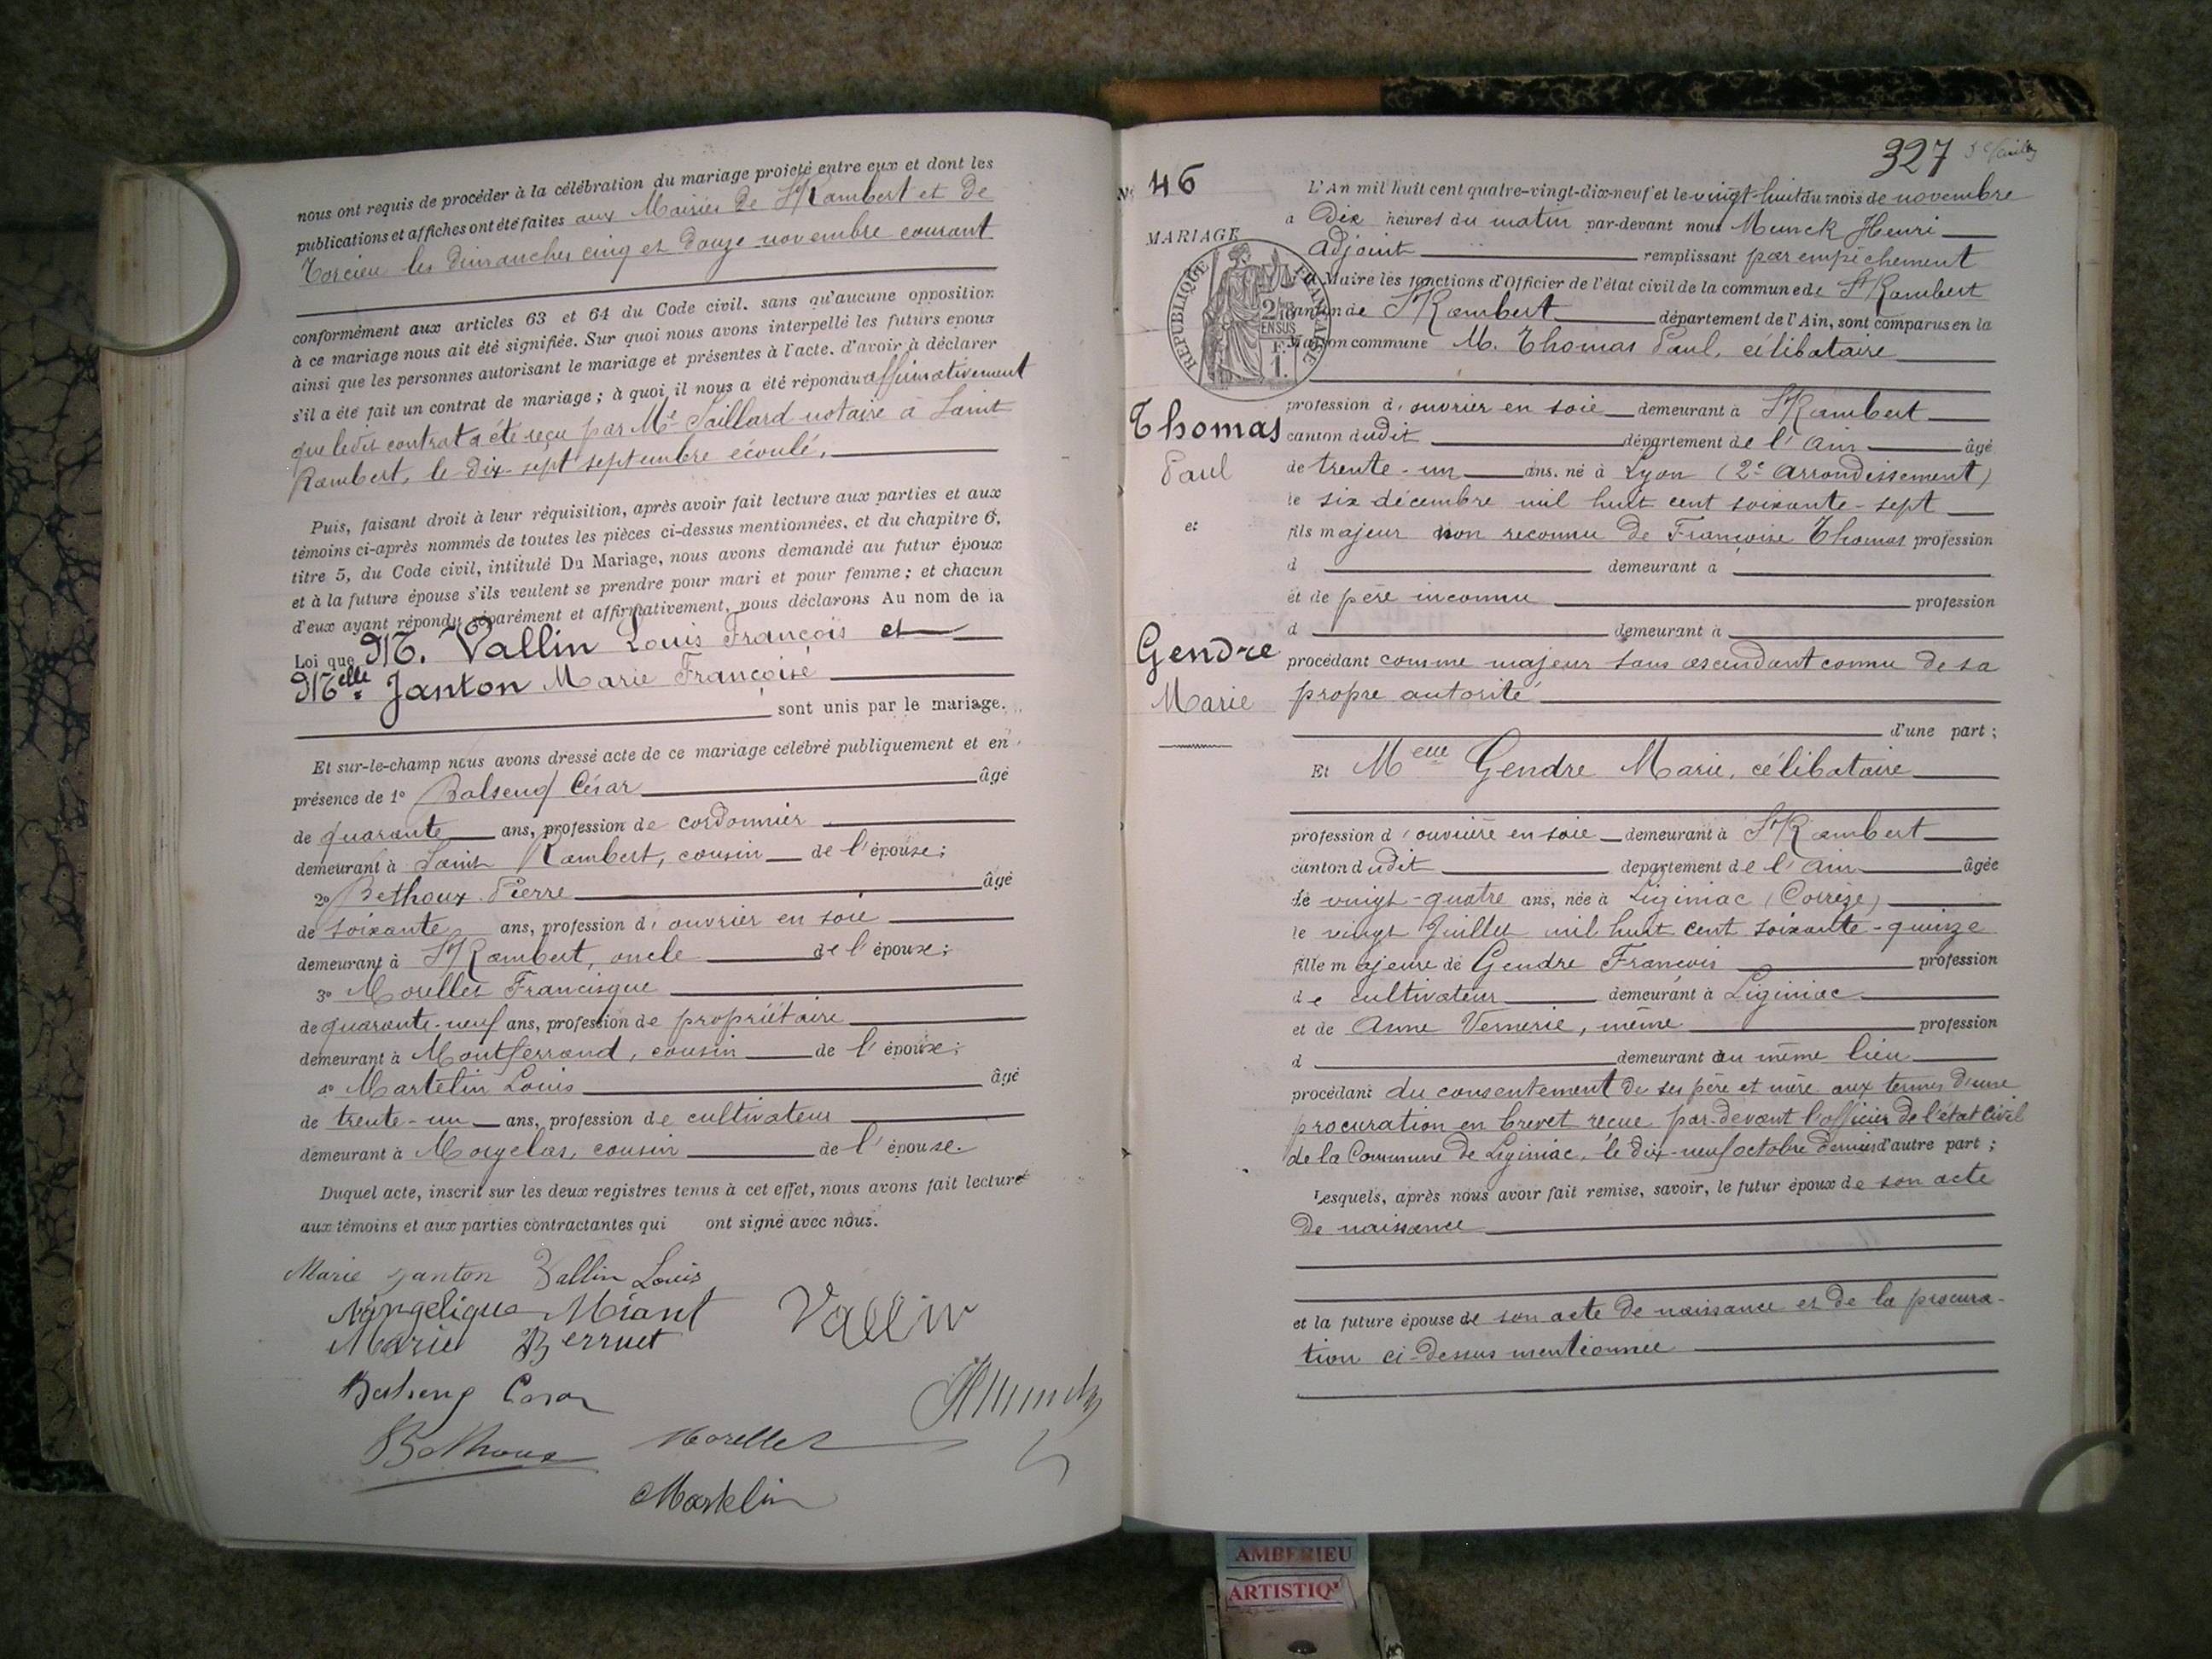 nous ont requis de procéder à la célébration du mariage projeté entre eux et dont les
publications et affiches ont été faites aux Mairies de St Rambert et de
Torcieu les dimanches cinq et douze novembre courant
conformément aux articles 63 et 64 du Code civil. sans qu'aucune opposition
à ce mariage nous ait été signifiée. Sur quoi nous avons interpellé les futurs epoux
ainsi que les personnes autorisant le mariage et présentes à l'acte. d'avoir à déclarer
s'il a été fait un contrat de mariage ; à quoi il nous a été répondu affirmativement
que ledit contrat a été reçu par Me Saillard notaire à Saint
Rambert, le dix-sept septembre écoulé,
Puis, faisant droit à leur réquisition, après avoir fait lecture aux parties et aux
témoins ci-après nommés de toutes les pièces ci-dessus mentionnées, et du chapitre 6,
titre 5, du Code civil, intitulé Du Mariage, nous avons demandé au futur époux
et à la future épouse s'ils veulent se prendre pour mari et pour femme ; et chacun
d'eux ayant répondu séparément et affirmativement, nous déclarons Au nom de la
Loi que M. Vallin Louis François et
Melle Janton Marie Françoise
sont unis par le mariage.
Et sur-le-champ nous avons dressé acte de ce mariage célébré publiquement et en
présence de 1° César âgé
de quarante ans, profession de cordonnier
demeurant à Saint Rambert, cousin de l'épouse ;
2° Bethoux Pierre âgé
de soixante ans, profession d'ouvrier en soie
demeurant à St Rambert, oncle de l'épouse ;
3° Morellet Francisque
de quarante-neuf ans, profession de propriétaire
demeurant à Montferrand, cousin de l'épouse ;
4° Martelin Louis âgé
de trente-un ans, profession de cultivateur
demeurant à Morgelas, cousin de l'épouse.
Duquel acte, inscrit sur les deux registres tenus à cet effet, nous avons fait lecture
aux témoins et aux parties contractantes qui ont signé avec nous.
Marie Janton Vallin Louis
Angelique Miant Vallin
Marie Berruet
HMunck
Bethoux Morellet
Martelin
327
N° 46
MARIAGE
RÉPUBLIQUE FRANÇAISE
2/10 EN SUS
F. 1.
Thomas
Paul
et
Gendre
Marie
L'An mil huit cent quatre-vingt-dix-neuf et le vingt-huit du mois de novembre
a Dix heures du matin par-devant nous Munck Henri
adjoint remplissant par empêchement
du Maire les fonctions d'Officier de l'état civil de la commune de St Rambert
canton de St Rambert département de l'Ain, sont comparus en la
Maison commune M. Thomas Paul, célibataire
profession d'ouvrier en soie demeurant à St Rambert
canton dudit département de l'Ain âgé
de trente-un ans. né à Lyon (2e Arrondissement)
le six décembre mil huit cent soixante-sept
fils majeur non reconnu de Françoise Thomas profession
d demeurant à
et de père inconnu profession
d demeurant à
procédant comme majeur sans ascendant connu de sa
propre autorité
d'une part ;
Et Melle Gendre Marie, célibataire
profession d'ouvrière en soie demeurant à St Rambert
canton dudit département de l'Ain âgée
de vingt-quatre ans, née à Liginiac (Corrèze)
le vingt Juillet mil huit cent soixante-quinze
fille majeure de Gendre François profession
de cultivateur demeurant à Liginiac
et de Anne Vernerie, même profession
d demeurant au même lieu
procédant du consentement de ses père et mère aux termes d'une
procuration en brevet reçue par-devant l'officier de l'état civil
de la Commune de Liginiac, le dix-neuf octobre dernier d'autre part ;
Lesquels, après nous avoir fait remise, savoir, le futur époux de son acte
de naissance
et la future épouse de son acte de naissance et de la procura-
tion ci-dessus mentionnée
AMBERIEU
ARTISTIQ